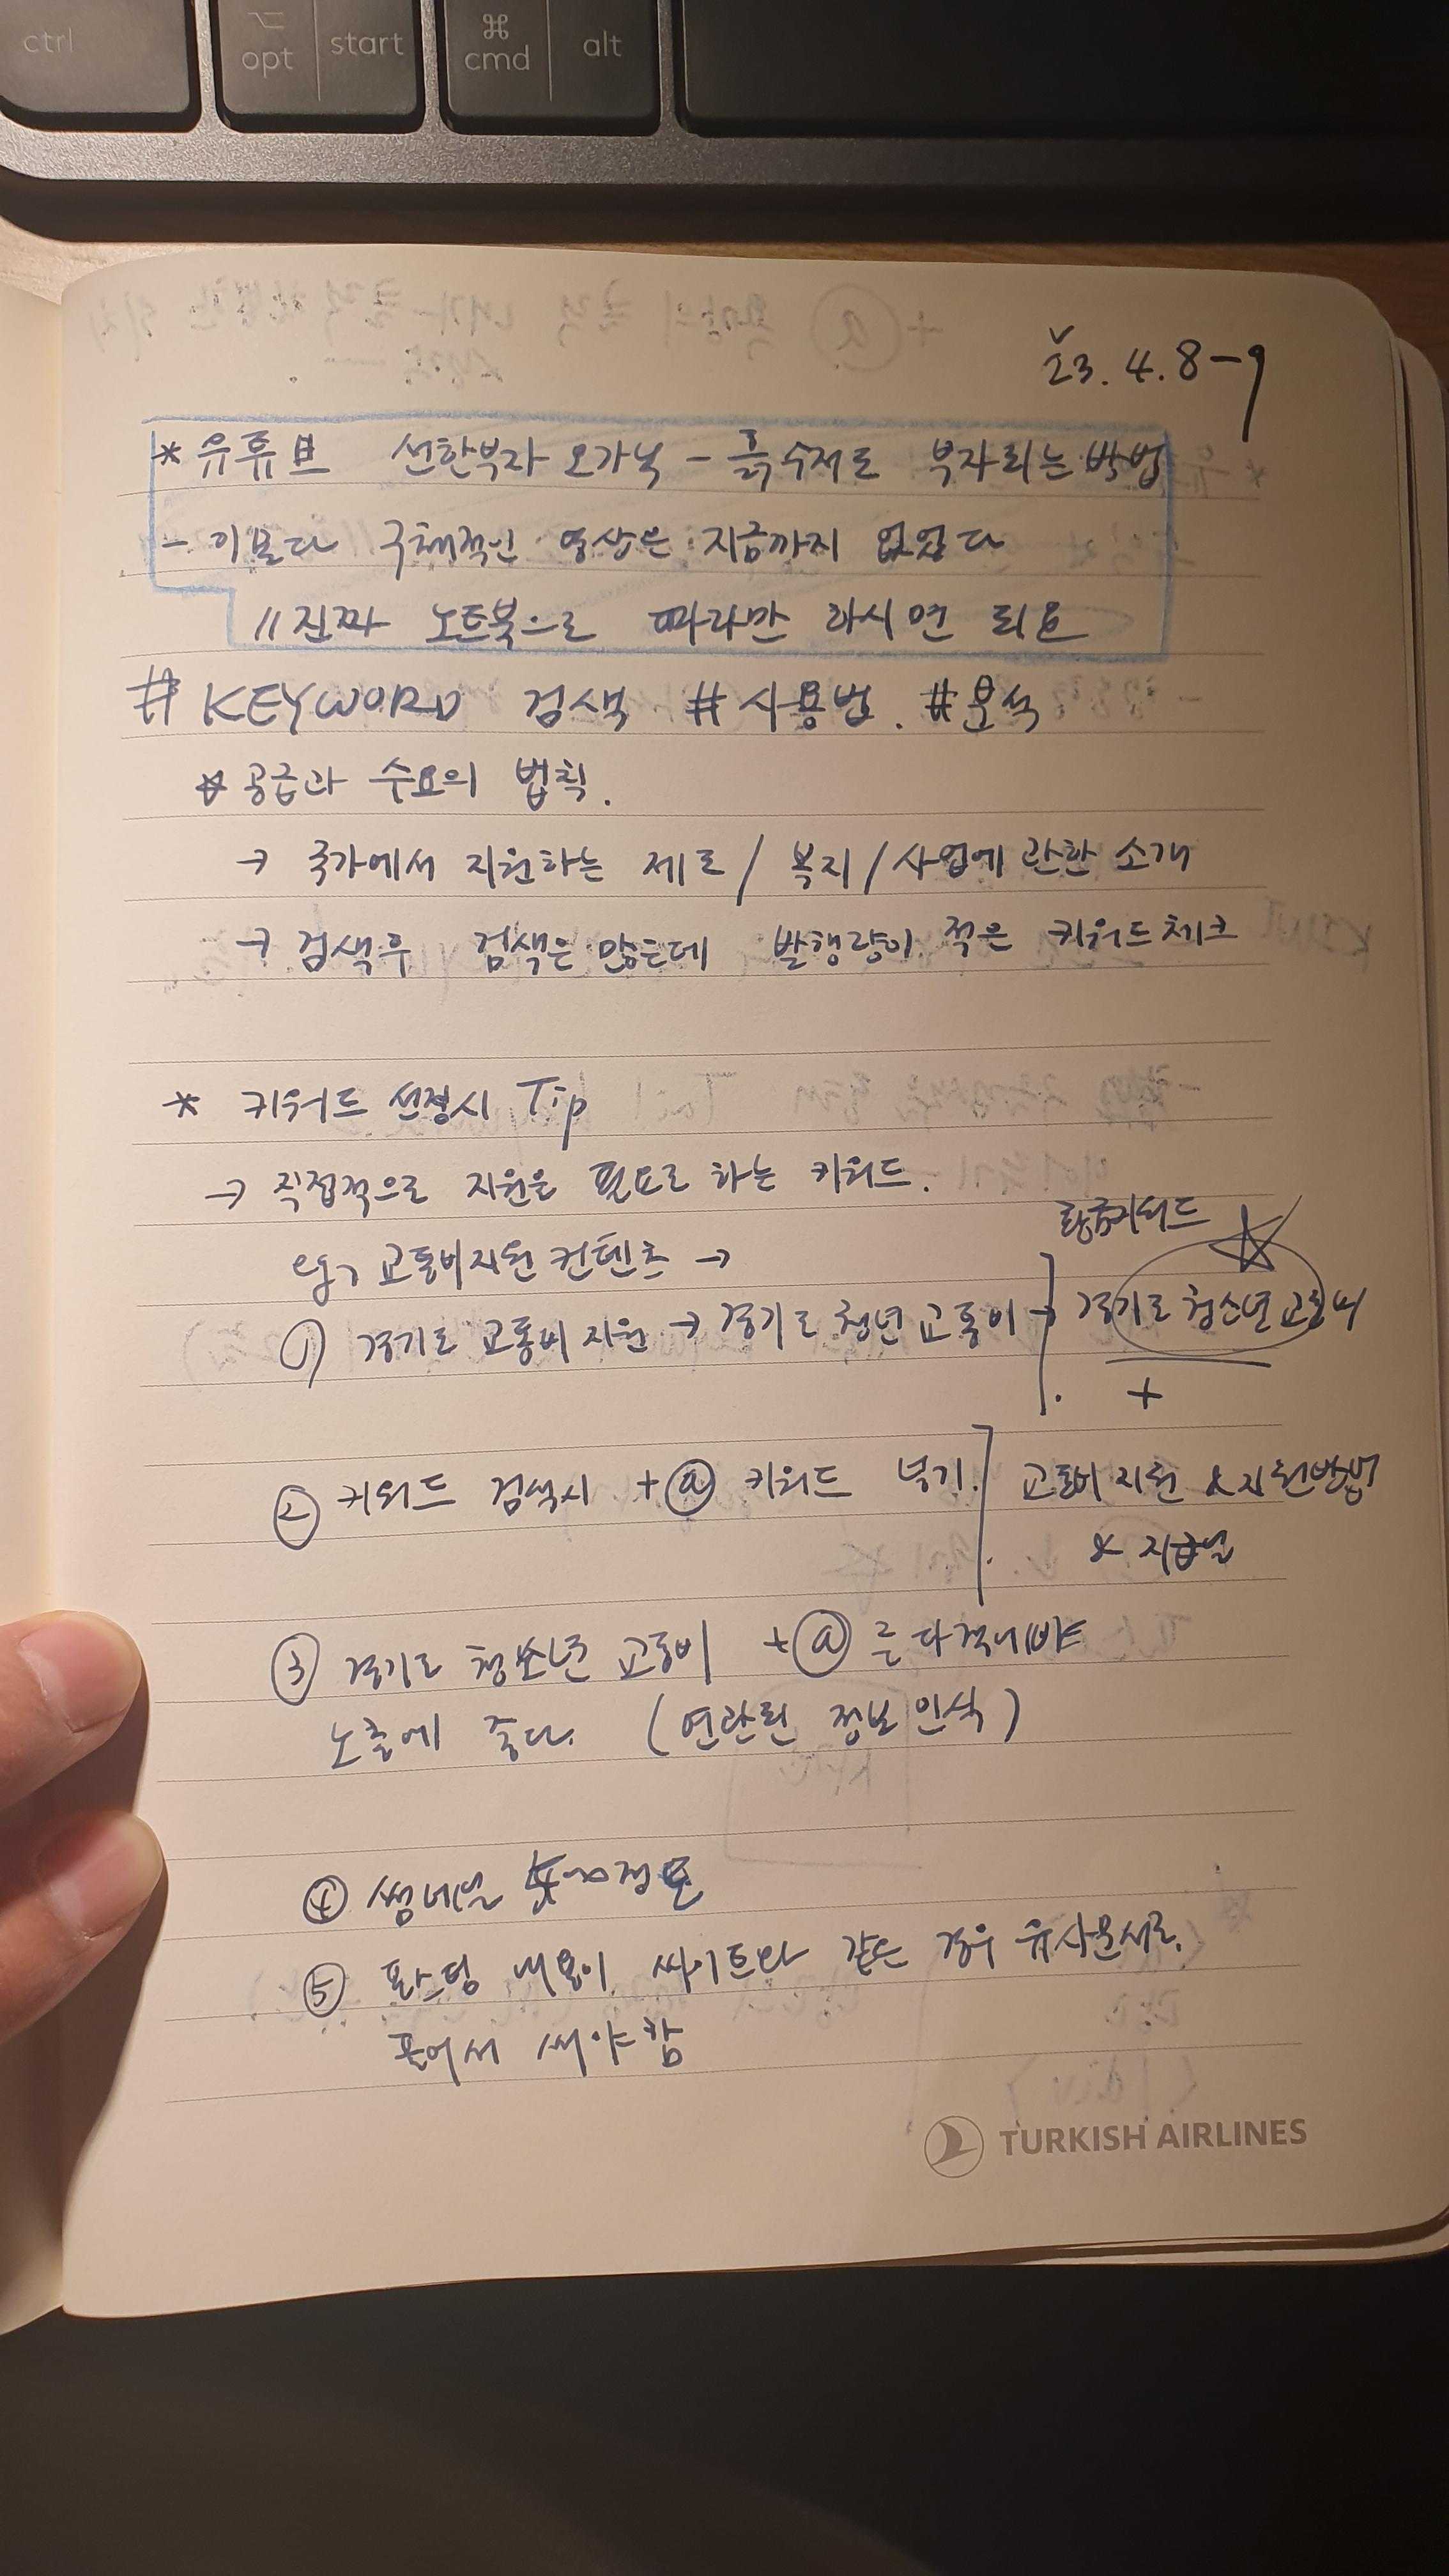 ctrl
opt start
⌘
cmd alt
23. 4. 8-9
* 유튜브 선한부자 오가닉 - 흙수저로 부자되는 방법
- 이보다 구체적인 영상은 지금까지 없었다
// 진짜 노트북으로 따라만 하시면 되요
# KEYWORD 검색 # 사용법. # 분석
* 공급과 수요의 법칙.
→ 국가에서 지원하는 제도 / 복지 / 사업에 관한 소개
→ 검색후 검색은 많은데 발행량이 적은 키워드 체크
* 키워드 선정시 Tip
→ 직접적으로 지원을 필요로 하는 키워드.
황금키워드
eg) 교통비지원 컨텐츠 →
① 경기도 교통비 지원 → 경기도 청년 교통비 → 경기도 청소년 교통비
+
② 키워드 검색시 + ⓐ 키워드 넣기. 교통비 지원 & 지원방법
& 지급일
③ 경기도 청소년 교통비 + ⓐ 를 다 적어봐야
노출에 좋다. (연관된 정보 인식)
④ 썸네일
⑤ 포스팅 내용이 싸이트와 같은 경우 유사문서로.
풀어서 써야함
TURKISH AIRLINES